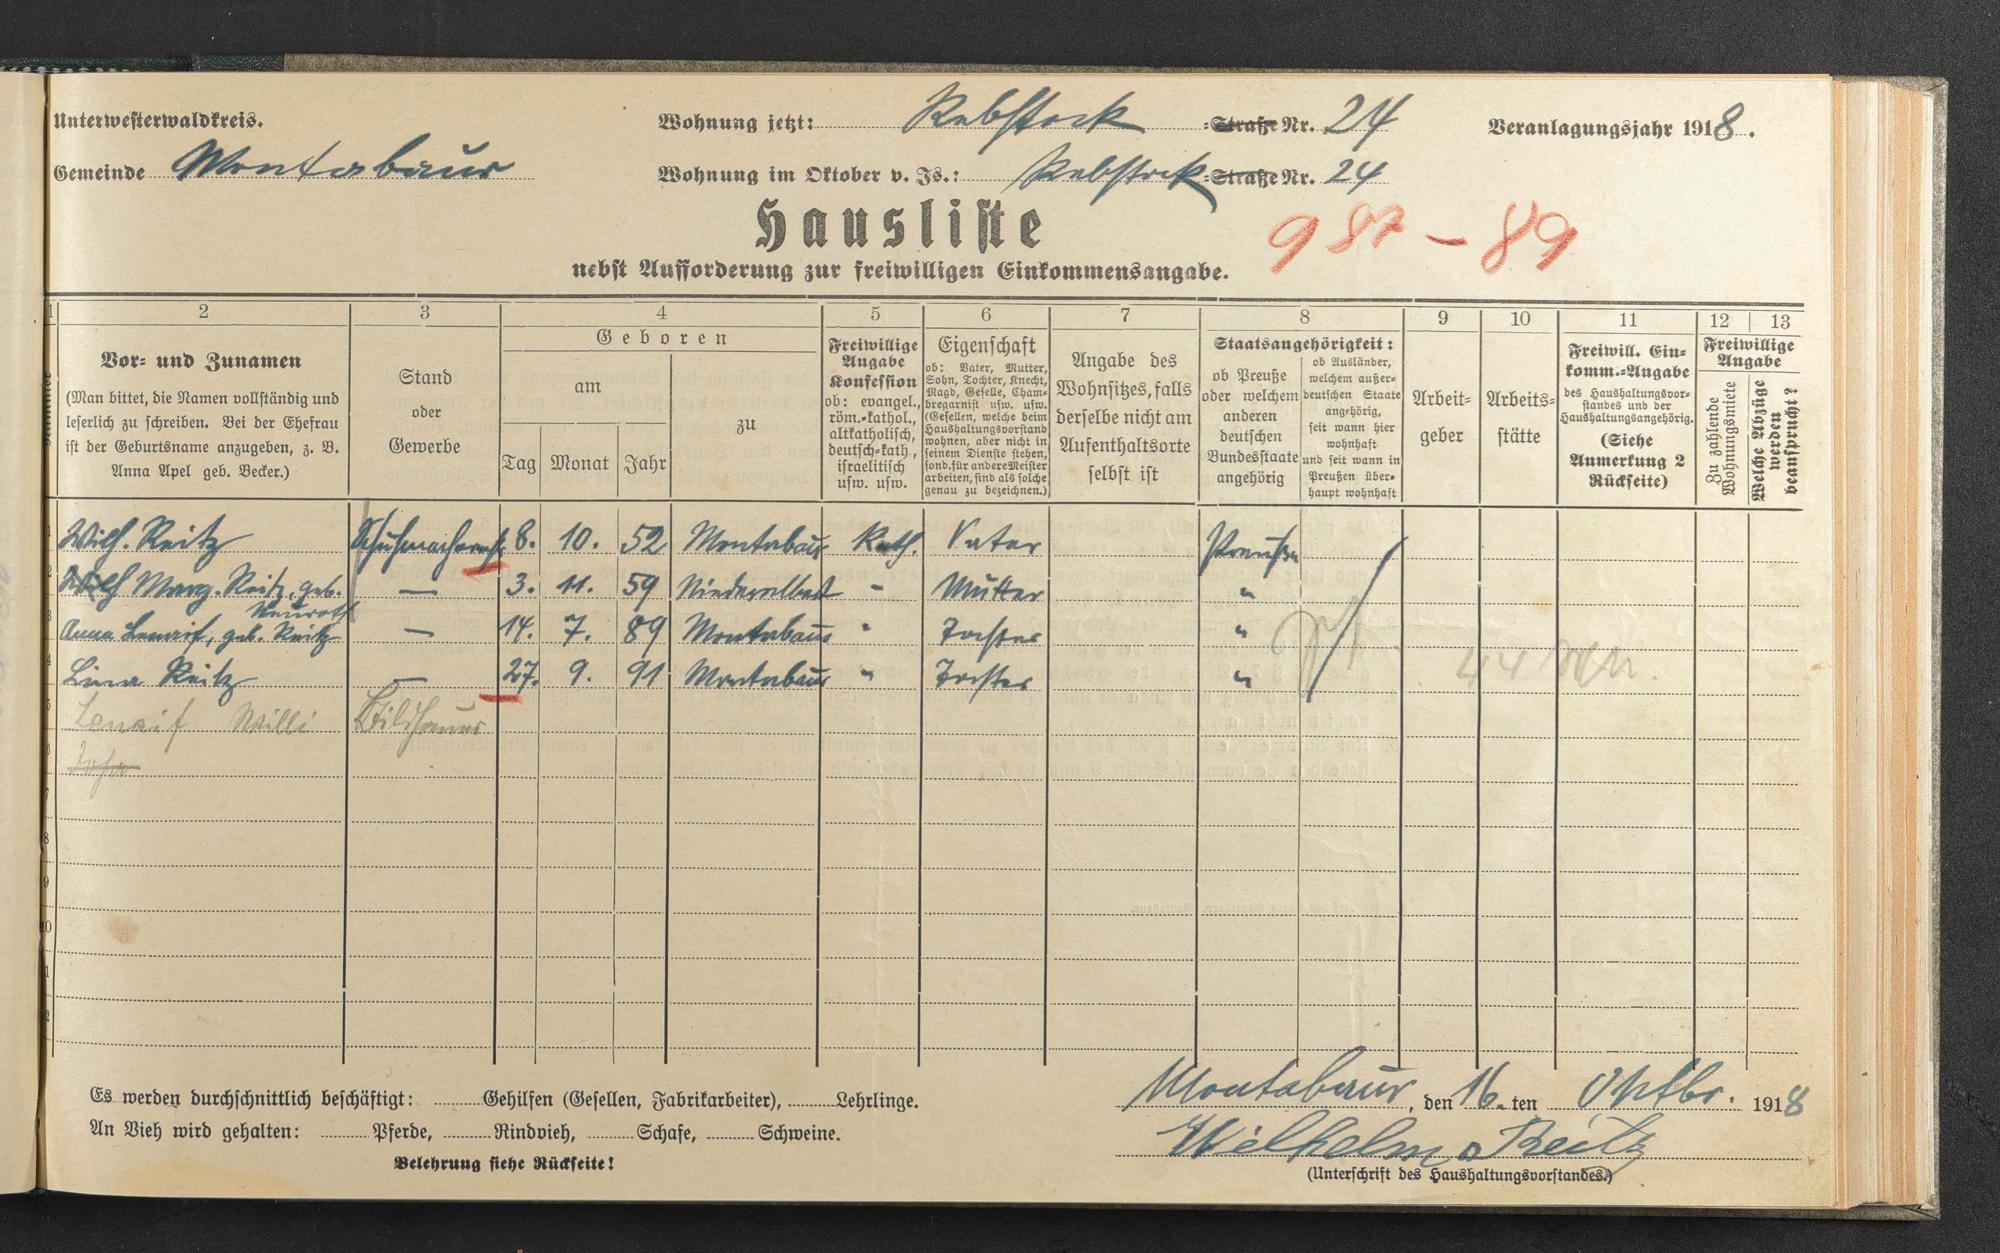 Unterwesterwaldkreis.
Gemeinde Montabaur
Wohnung jetzt: Rebstock =Straße Nr. 24
Wohnung im Oktober v. Js.: Rebstock =Straße Nr. 24
Veranlagungsjahr 1918.
Hausliste
987-89
nebst Aufforderung zur freiwilligen Einkommensangabe.
1 2 3 4 5 6 7 8 9 10 11 12 13
Vor- und Zunamen
(Man bittet, die Namen vollständig und
leserlich zu schreiben. Bei der Ehefrau
ist der Geburtsname anzugeben, z. B.
Anna Apel geb. Becker.)
Stand
oder
Gewerbe
Geboren
am
Tag Monat Jahr
zu
Freiwillige
Angabe
Konfession
ob: evangel.,
röm.-kathol.,
altkatholisch,
deutsch-kath.,
israelitisch
usw. usw.
Eigenschaft
ob: Vater, Mutter,
Sohn, Tochter, Knecht,
Magd, Geselle, Cham-
bregarnist usw. usw.
(Gesellen, welche beim
Haushaltungsvorstand
wohnen, aber nicht in
seinem Dienste stehen,
sond. für andere Meister
arbeiten, sind als solche
genau zu bezeichnen.)
Angabe des
Wohnsitzes, falls
derselbe nicht am
Aufenthaltsorte
selbst ist
Staatsangehörigkeit:
ob Preuße
oder welchem
anderen
deutschen
Bundesstaate
angehörig
ob Ausländer,
welchem außer-
deutschen Staate
angehörig,
seit wann hier
wohnhaft
und seit wann in
Preußen über-
haupt wohnhaft
Arbeit-
geber
Arbeits-
stätte
Freiwill. Ein-
komm.-Angabe
des Haushaltungsvor-
standes und der
Haushaltungsangehörig.
(Siehe
Anmerkung 2
Rückseite)
Freiwillige
Angabe
Zu zahlende
Wohnungsmiete
Welche Abzüge
werden
beansprucht?
Wilh. Reitz 8. 10. 52 Montabaur Kath. Vater Preuße
Marg. Reitz, geb. Neuroth — 3. 11. 59 Niederelbert " Mutter "
Anna Lenaif, geb. Reitz — 14. 7. 89 Montabaur " Tochter "
Lina Reitz — 27. 9. 91 Montabaur " Tochter "
Lenaif Willi Bildhauer
Es werden durchschnittlich beschäftigt: Gehilfen (Gesellen, Fabrikarbeiter), Lehrlinge.
An Vieh wird gehalten: Pferde, Rindvieh, Schafe, Schweine.
Belehrung siehe Rückseite!
Montabaur, den 16.ten Oktbr. 1918
Wilhelm Reitz
(Unterschrift des Haushaltungsvorstandes.)